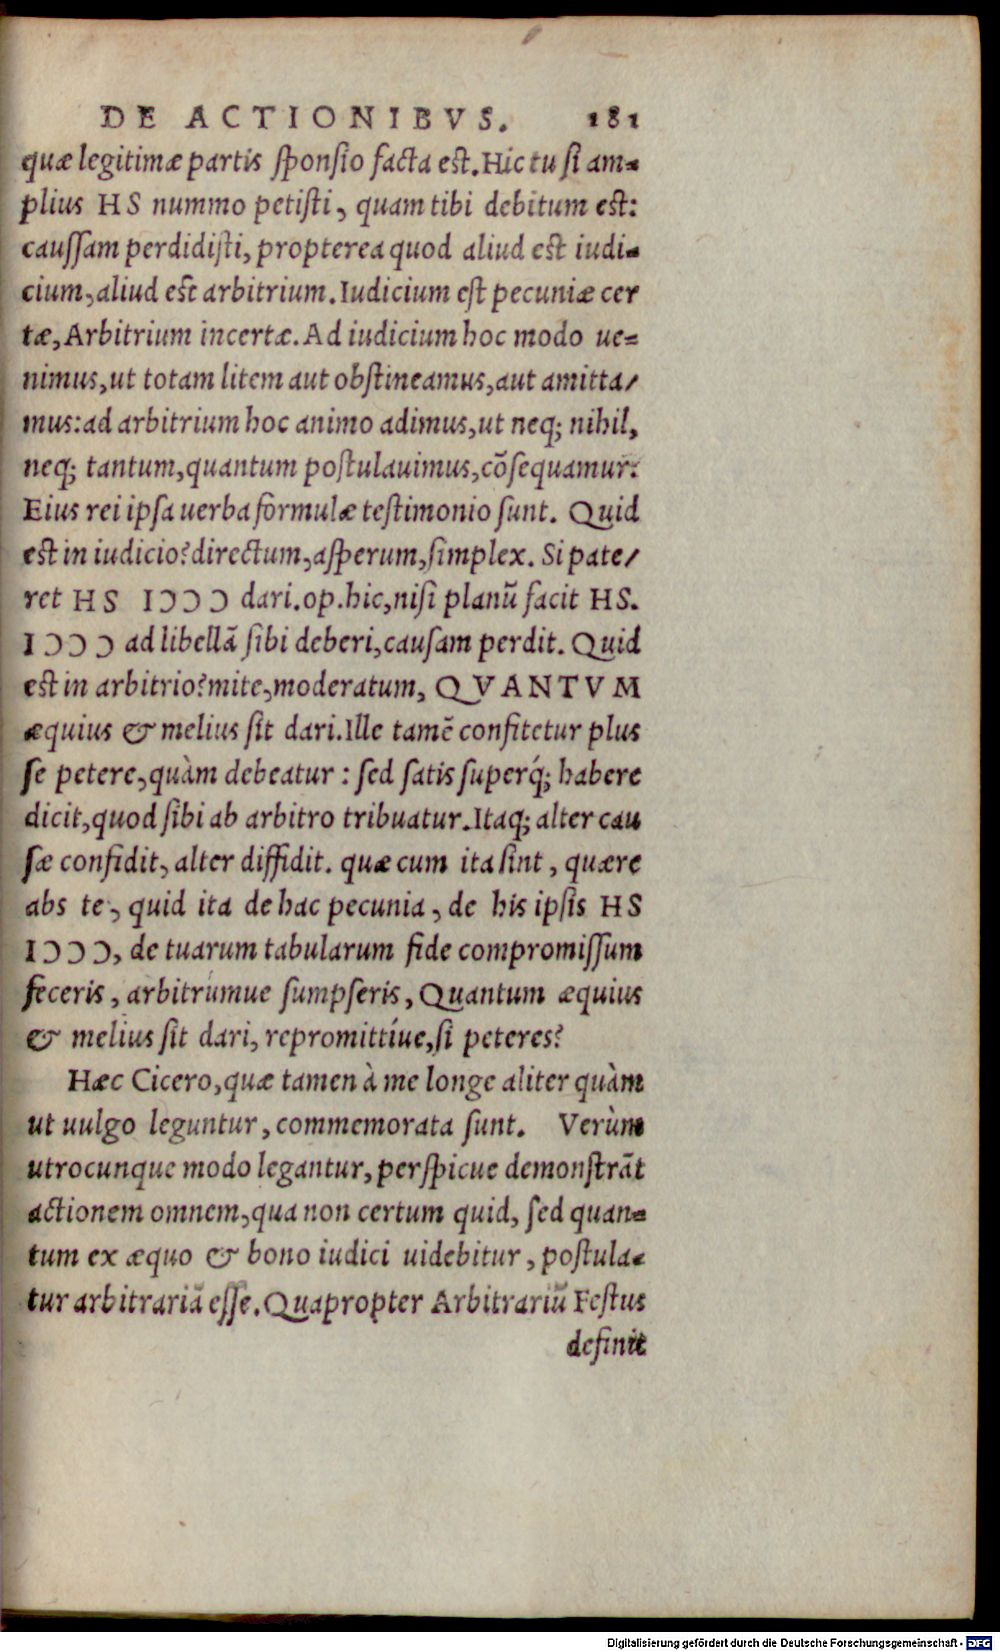 DE ACTIONIBVS. 181
quæ legitimæ partis sponsio facta est. Hic tu si am-
plius HS nummo petisti, quam tibi debitum est:
caussam perdidisti, propterea quod aliud est iudi-
cium, aliud est arbitrium. Iudicium est pecuniæ cer
tæ, Arbitrium incertæ. Ad iudicium hoc modo ue-
nimus, ut totam litem aut obstineamus, aut amitta/
mus: ad arbitrium hoc animo adimus, ut neq; nihil,
neq; tantum, quantum postulauimus, cōsequamur:
Eius rei ipsa uerba formulæ testimonio sunt. Quid
est in iudicio? directum, asperum, simplex. Si pate/
ret HS IↃↃↃ dari. op. hic, nisi planũ facit HS.
IↃↃↃ ad libellã sibi deberi, causam perdit. Quid
est in arbitrio? mite, moderatum, QVANTVM
æquius & melius sit dari. Ille tamẽ confitetur plus
se petere, quàm debeatur : sed satis superq́; habere
dicit, quod sibi ab arbitro tribuatur. Itaq; alter cau
sæ confidit, alter diffidit. quæ cum ita sint, quære
abs te, quid ita de hac pecunia, de his ipsis HS
IↃↃↃ, de tuarum tabularum fide compromissum
feceris, arbitrumue sumpseris, Quantum æquius
& melius sit dari, repromittíue, si peteres?
Hæc Cicero, quæ tamen à me longe aliter quàm
ut uulgo leguntur, commemorata sunt. Verùm
utrocunque modo legantur, perspicue demonstrãt
actionem omnem, qua non certum quid, sed quan-
tum ex æquo & bono iudici uidebitur, postula-
tur arbitrariã esse. Quapropter Arbitrariũ Festus
definit
Digitalisierung gefördert durch die Deutsche Forschungsgemeinschaft - DFG